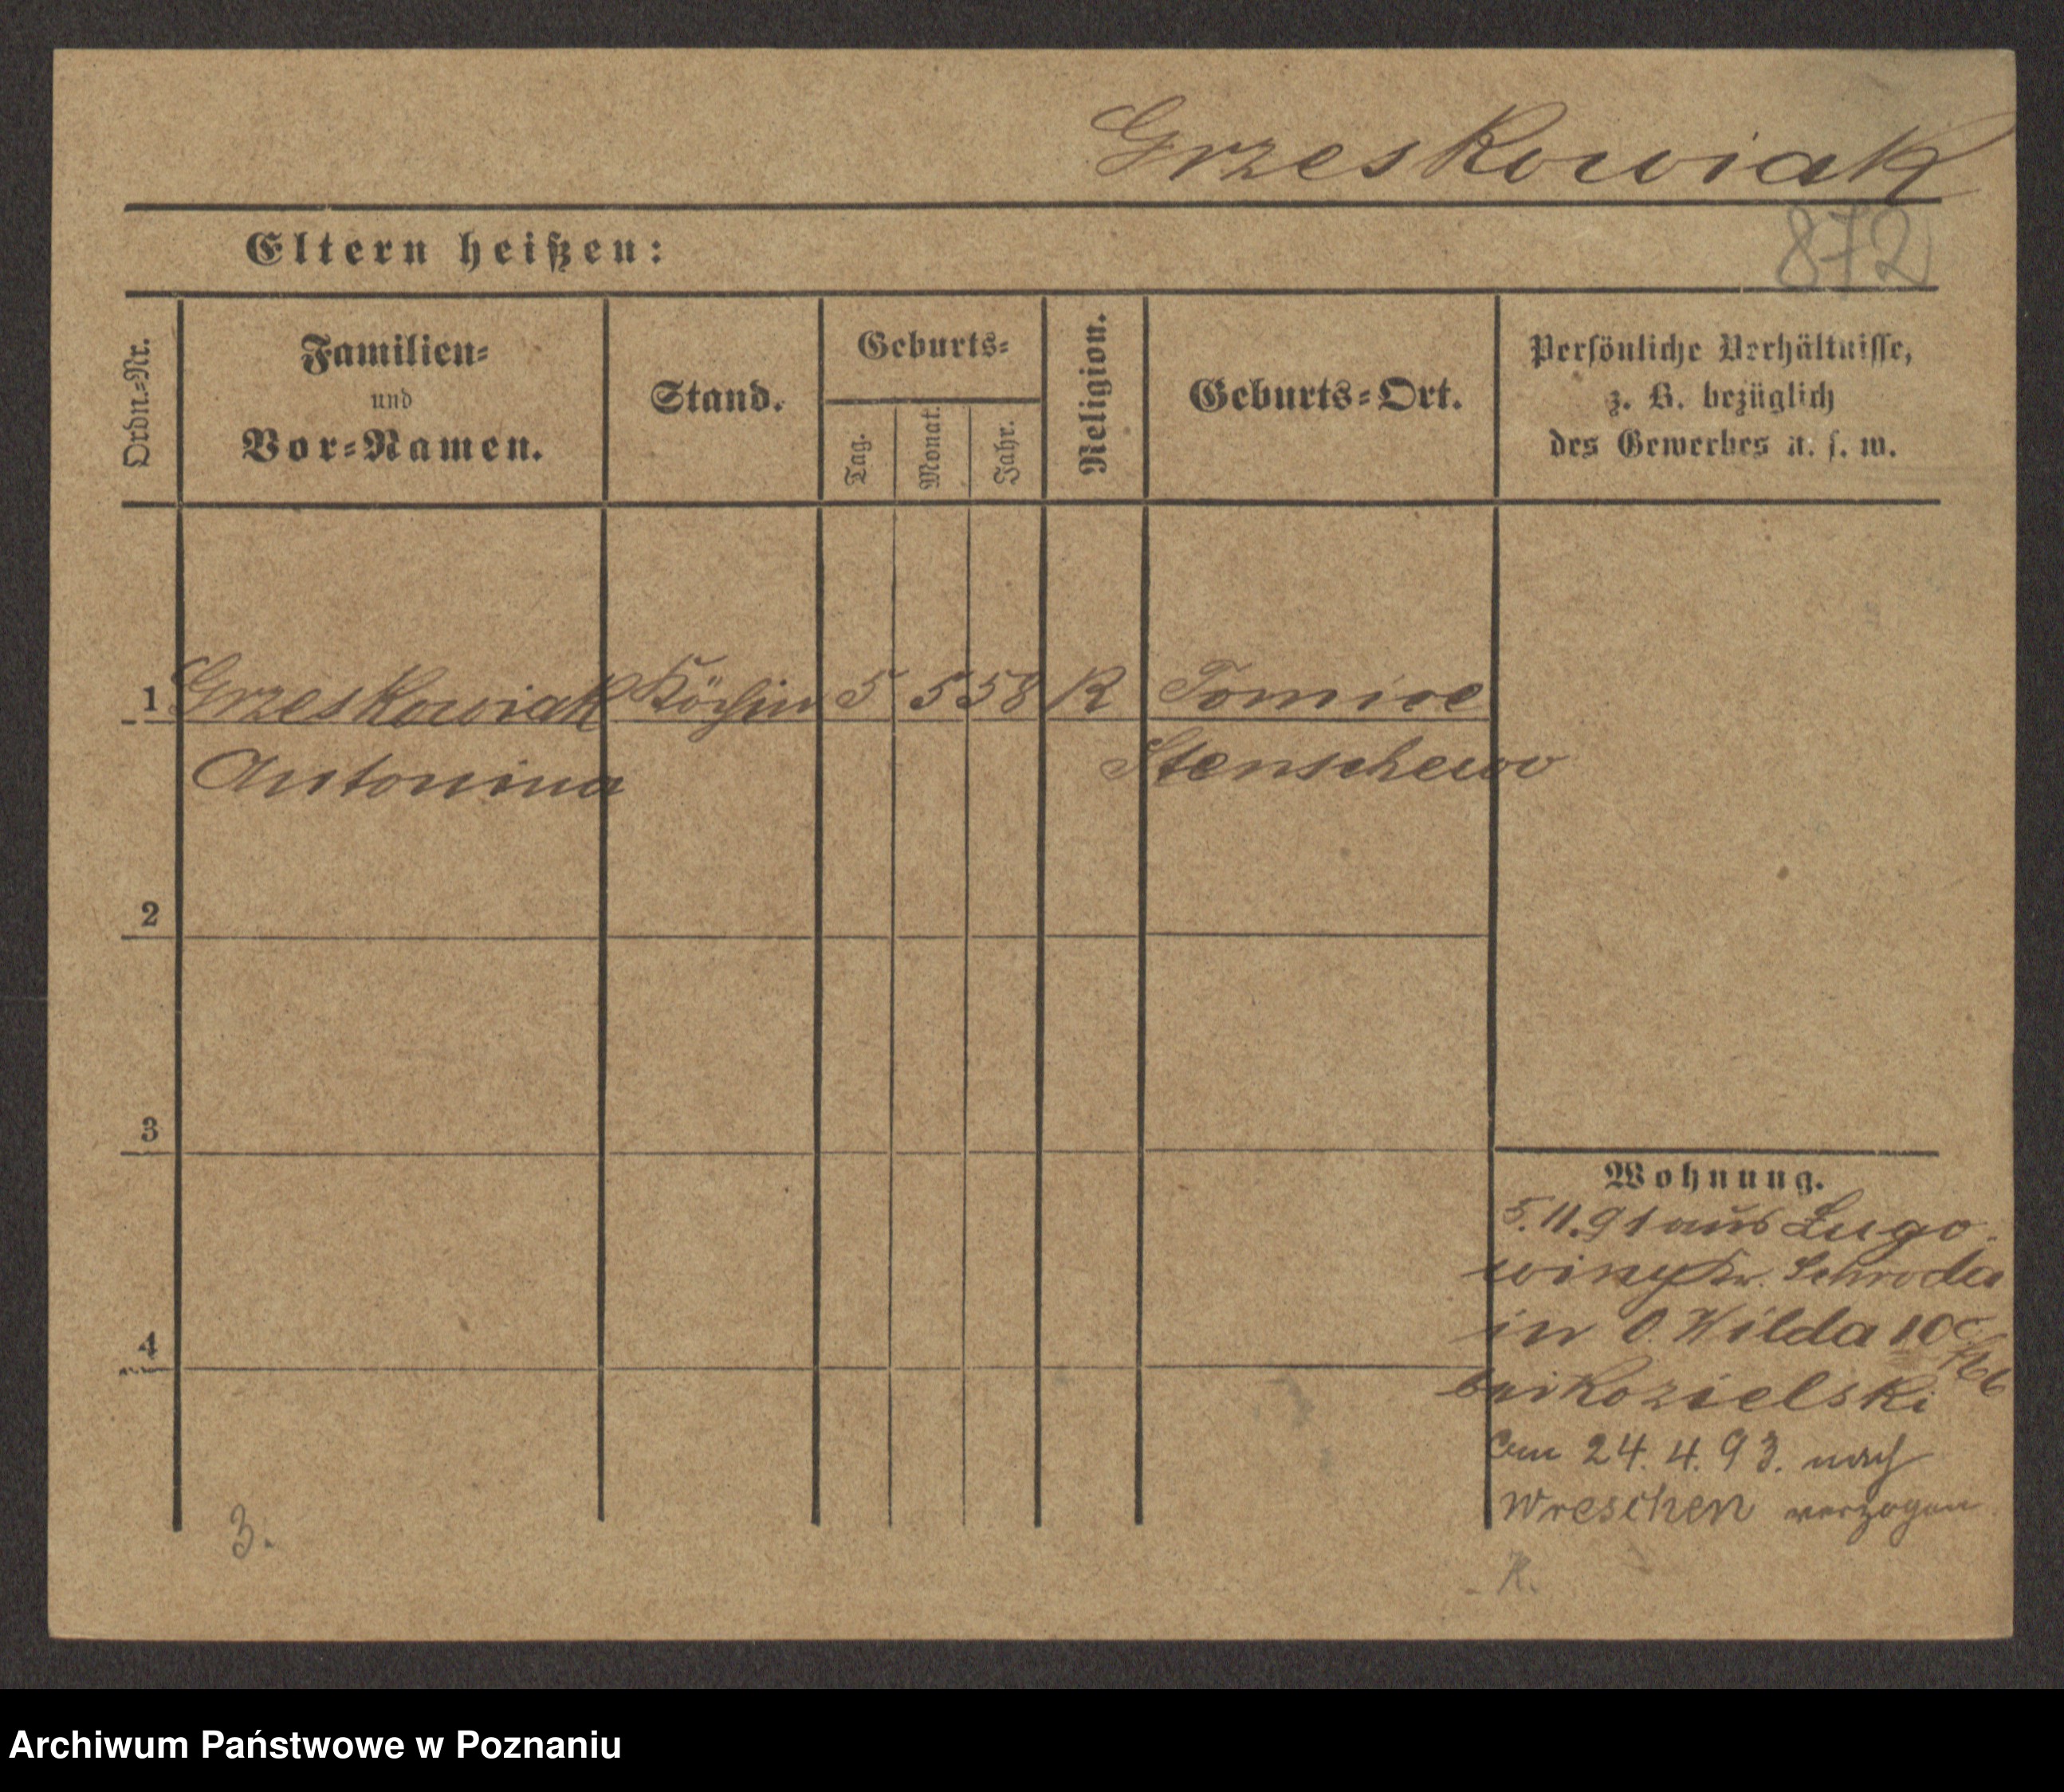 Grzeskowiak
Eltern heißen:
872
Ordn.=Nr.
Familien=
und
Vor=Namen.
Stand.
Geburts=
Tag.
Monat.
Jahr.
Religion.
Geburts=Ort.
Persönliche Verhältnisse,
z. B. bezüglich
des Gewerbes u. s. w.
1 Grzeskowiak Köchin 5 5 58 R Tomice
Antonina Stenschewo
2
3
4
Wohnung.
5.11.91 aus Lugo
winy Kr. Schroda
in O. Wilda 10
bei Kozielski
Am 24.4.93. nach
Wreschen verzogen
3.
K.
Archiwum Państwowe w Poznaniu